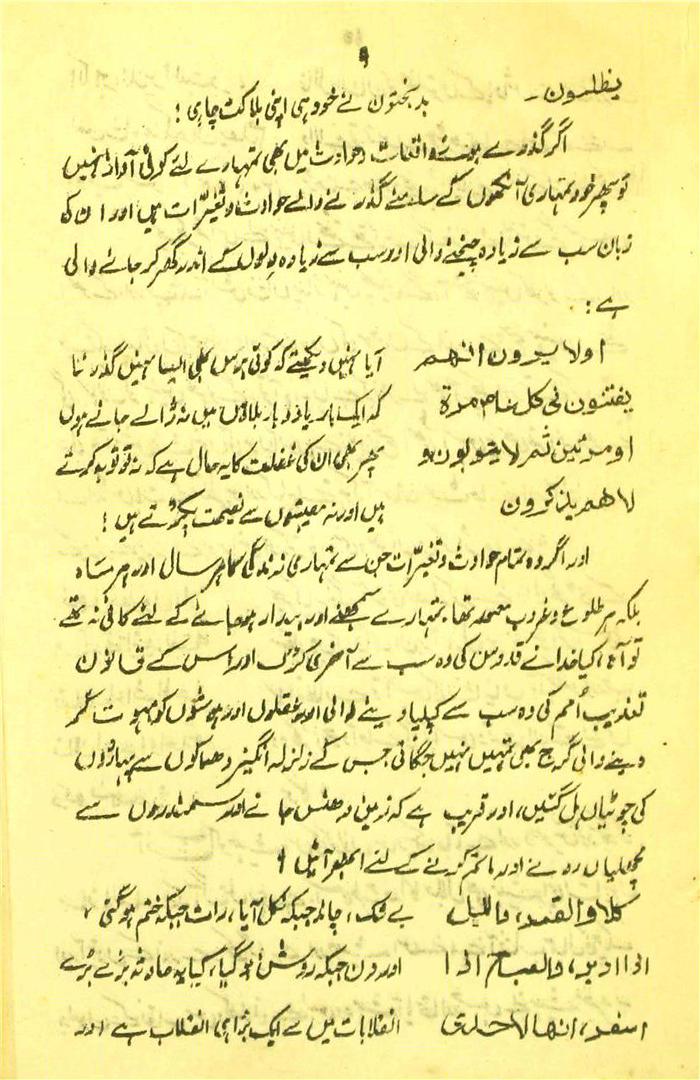 ۹
یظلمون۔ بدبختوں نے خود ہی اپنی ہلاکت چاہی!
اگر گذرے ہوئے واقعات و حوادث میں بھی تمہارے لئے کوئی آواز نہیں
تو پھر خود تمہاری آنکھوں کے سامنے گذرنے والے حوادث و تغیرات ہیں اور ان کی
زبان سب سے زیادہ چیخنے والی اور سب سے زیادہ دلوں کے اندر گھر کر جانے والی
ہے:
اولا یرون انھم آیا نہیں دیکھتے کہ کوئی برس بھی ایسا نہیں گذرتا
یفتنون فی کل عام مرۃ کہ ایک بار یا دو بار بلاؤں میں نہ ڈالے جاتے ہوں
او مرتین ثم لا یتوبون و پھر بھی ان کی غفلت کا یہ حال ہے کہ نہ تو توبہ کرتے
لا ھم یذکرون ہیں اور نہ مصیبتوں سے نصیحت پکڑتے ہیں!
اور اگر وہ تمام حوادث و تغیرات جن سے تمہاری زندگی کا ہر سال اور ہر ماہ
بلکہ ہر طلوع و غروب معمور تھا، تمہارے سمجھنے اور بیدار ہو جانے کے لئے کافی نہ تھے
تو آہ، کیا خدائے قدوس کی وہ سب سے آخری کڑک اور اس کے قانون
تعذیب اُمم کی وہ سب سے کپکپا دینے والی اور عقلوں اور ہوشوں کو مبہوت کر
دینے والی گرج بھی تمہیں نہیں جگاتی جس کے زلزلہ انگیز دھماکوں سے پہاڑوں
کی چوٹیاں ہل گئیں، اور قریب ہے کہ زمین دھنس جائے اور سمندروں سے
مچھلیاں رونے اور ماتم کرنے کے لئے ابھر آئیں؟
کلا والقمر، واللیل بے شک، چاند جبکہ نکل آیا، رات جبکہ ختم ہو گئی،
اذ ادبر، والصبح اذا اور دن جبکہ روشن ہو گیا، کیا یہ حادثہ بڑے بڑے
اسفر، انھا لاحدی انقلابات میں سے ایک بڑا ہی انقلاب ہے اور